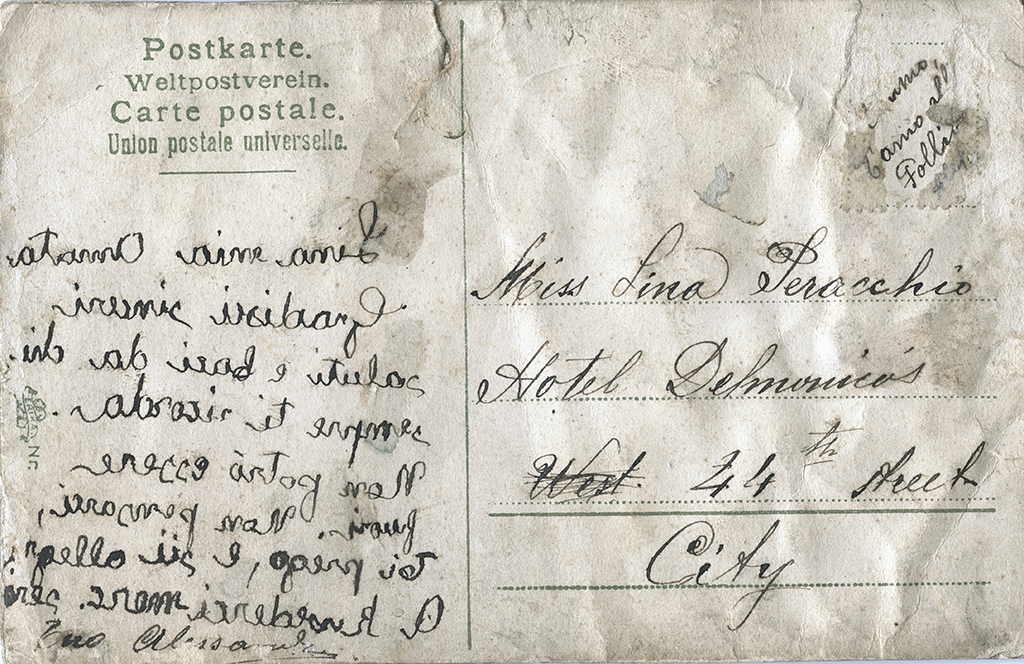 Postkarte.
Weltpostverein.
Carte postale.
Union postale universelle.
Lina mia Amata
Gradisci sinceri
saluti e baci da chi
sempre ti ricorda.
Non potrò essere
fuori. Non pensarci,
ti priego, e sii allegra
A Rivederci
Tuo Alessandro
amo,
Folli
Miss Lina Peracchio
Hotel Delmonico's
West 44th street
City
Nr.